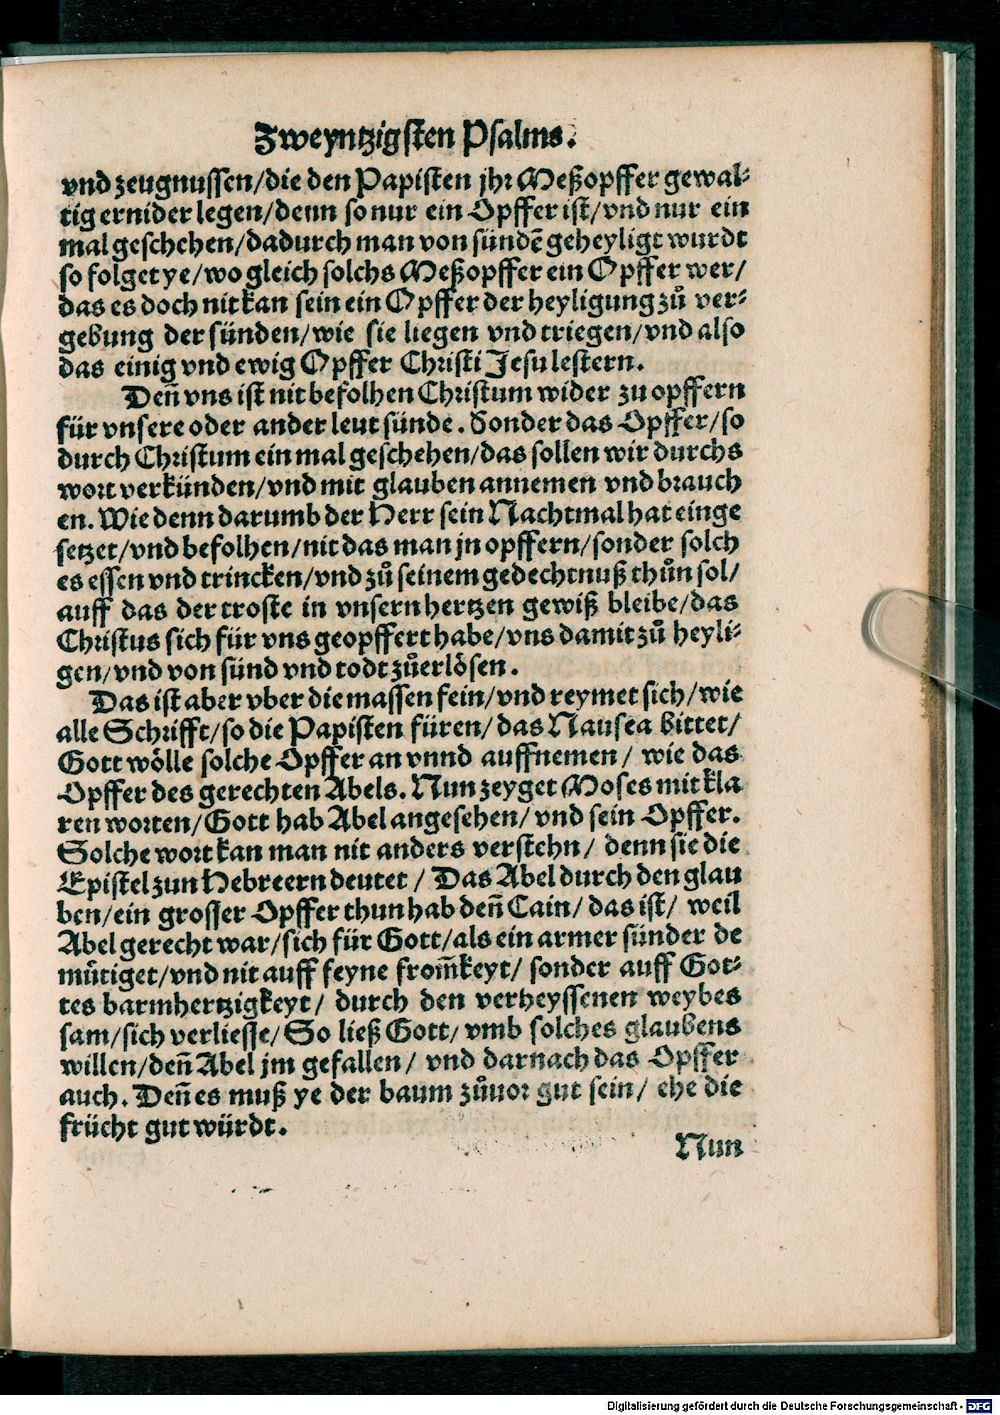 Zweyntzigsten Psalms.
vnd zeugnussen/die den Papisten jhr Meßopffer gewal⸗
tig ernider legen/denn so nur ein Opffer ist/vnd nur ein
mal geschehen/dadurch man von sündẽ geheyligt wurdt
so folget ye/wo gleich solchs Meßopffer ein Opffer wer/
das es doch nit kan sein ein Opffer der heyligung zů ver⸗
gebung der sünden/wie sie liegen vnd triegen/vnd also
das einig vnd ewig Opffer Christi Jesu lestern.
Deñ vns ist nit befolhen Christum wider zu opffern
für vnsere oder ander leut sünde. Sonder das Opffer/so
durch Christum ein mal geschehen/das sollen wir durchs
wort verkünden/vnd mit glauben annemen vnd brauch
en. Wie denn darumb der Herr sein Nachtmal hat einge
setzet/vnd befolhen/nit das man jn opffern/sonder solch
es essen vnd trincken/vnd zů seinem gedechtnuß thůn sol/
auff das der troste in vnsern hertzen gewiß bleibe/das
Christus sich für vns geopffert habe/vns damit zů heyli⸗
gen/vnd von sünd vnd todt zůerlösen.
Das ist aber vber die massen fein/vnd reymet sich/wie
alle Schrifft/so die Papisten füren/das Nausea bittet/
Gott wölle solche Opffer an vnnd auffnemen/ wie das
Opffer des gerechten Abels. Nun zeyget Moses mit kla
ren worten/Gott hab Abel angesehen/vnd sein Opffer.
Solche wort kan man nit anders verstehn/ denn sie die
Epistel zun Hebreern deutet/ Das Abel durch den glau
ben/ein grosser Opffer thun hab deñ Cain/das ist/ weil
Abel gerecht war/sich für Gott/als ein armer sünder de
mütiget/vnd nit auff seyne from̃keyt/ sonder auff Got⸗
tes barmhertzigkeyt/ durch den verheyssenen weybes
sam/sich verliesse/So ließ Gott/vmb solches glaubens
willen/deñ Abel jm gefallen/ vnd darnach das Opffer
auch. Deñ es muß ye der baum zůuor gut sein/ ehe die
frücht gut würdt.
Nun
Digitalisierung gefördert durch die Deutsche Forschungsgemeinschaft - DFG